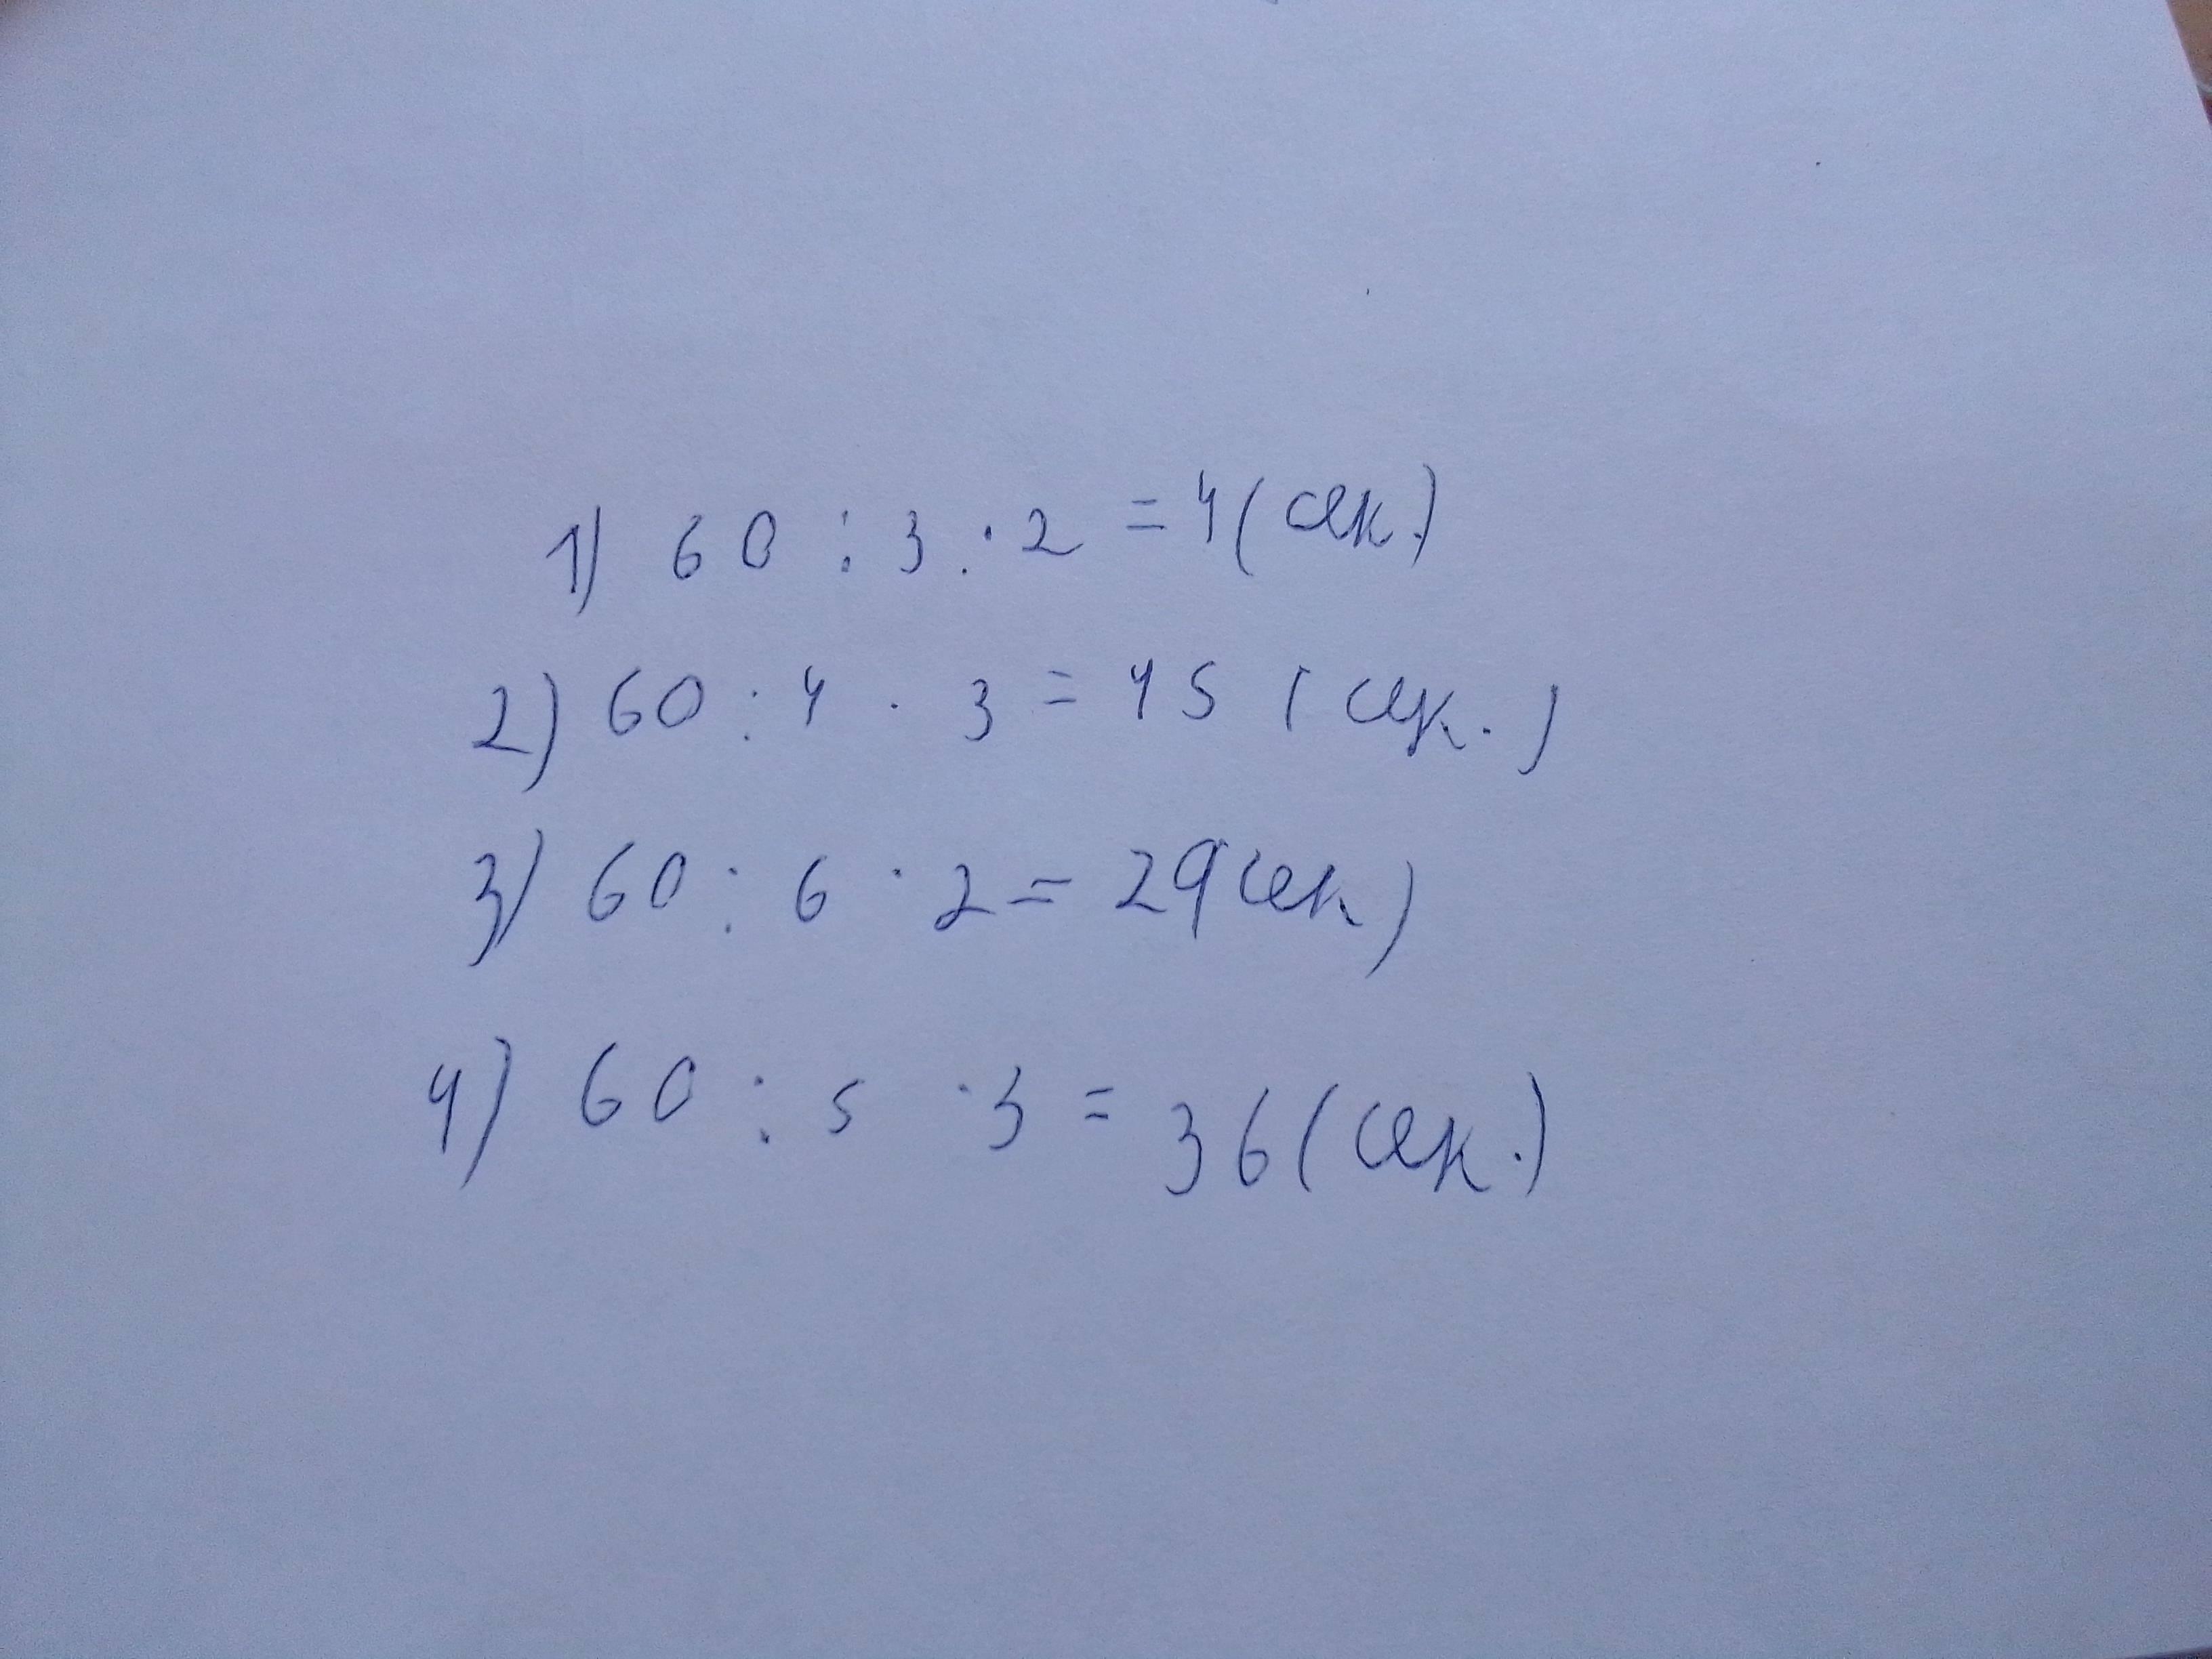 1) 60 : 3 . · 2 = 4 (сек.)
2) 60 : 4 · 3 = 45 (сек.)
3) 60 : 6 · 2 = 29 сек)
4) 60 : 5 · 3 = 36 (сек.)